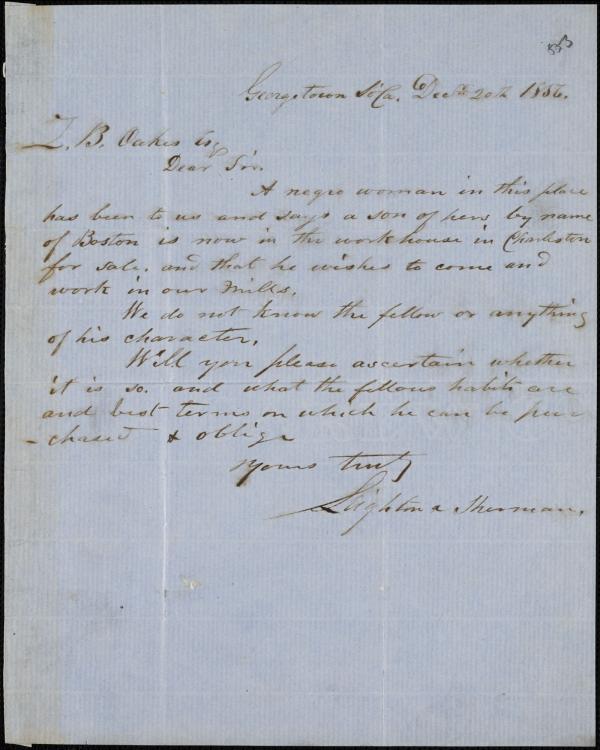 553
Georgetown So Ca. Dec. 20th 1856.
Z. B. Oakes Esq
Dear Sir.
A negro woman in this place
has been to us and says a son of hers by name
of Boston is now in the work house in Charleston
for sale. and that he wishes to come and
work in our Mills.
We do not know the fellow or anything
of his character.
Will you please ascertain whether
it is so. and what the fellows habits are
and best terms on which he can be pur
-chased & oblige
Yours truly
Leighton & Sherman.